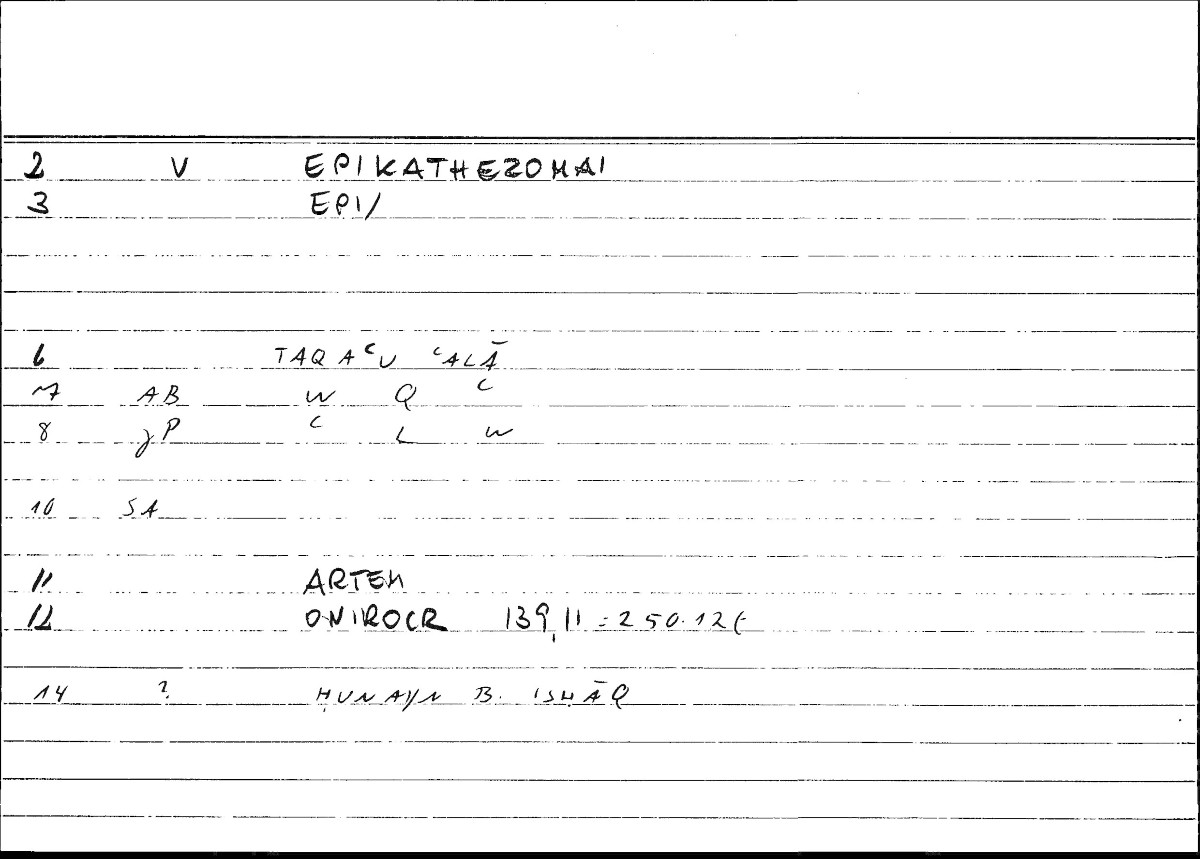 2 V EPIKATHEZOMAI
3 EPI/
6 TAQAʿU ʿALĀ
7 AB W Q ʿ
8 P ʿ L W
10 SA
11 ARTEM
12 ONIROCR 139,11 = 250.12
14 ? ḤUNAYN B. ISḤĀQ